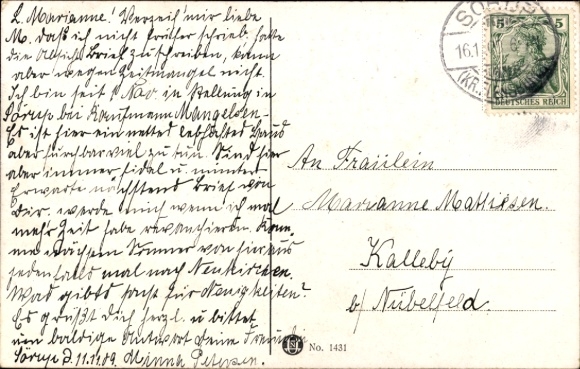 L. Marianne! Verzeih' mir liebe
M. daß ich nicht früher schrieb, hatte
die Absicht Brief zu schreiben, kann
aber wegen Zeitmangel nicht.
Ich bin seit 1 Nov. in Stellung in
Sörup bei Kaufmann Mangelsen.
Es ist hier ein nettes lebhaftes Haus
aber furchbar viel zu tun. Sind hier
aber immer fidel u. munter.
Erwarte nächstens Brief von
Dir. werde mich wenn ich mal
mehr Zeit habe revanchieren. Komme
nächsten Sommer von hier aus
jedenfalls mal nach Neukirchen.
Was gibts sonst für Neuigkeiten?
Es grüßt Dich herzl. u. bittet
um baldige Antwort Deine Freundin
Sörup d. 11.11.09. Minna Petersen.
SÖRUP
16.1
(KR. FLENSBURG)
5 5
DEUTSCHES REICH
An Fräulein
Marianne Mathiesen.
Kalleby
b/ Nübelfeld.
No. 1431